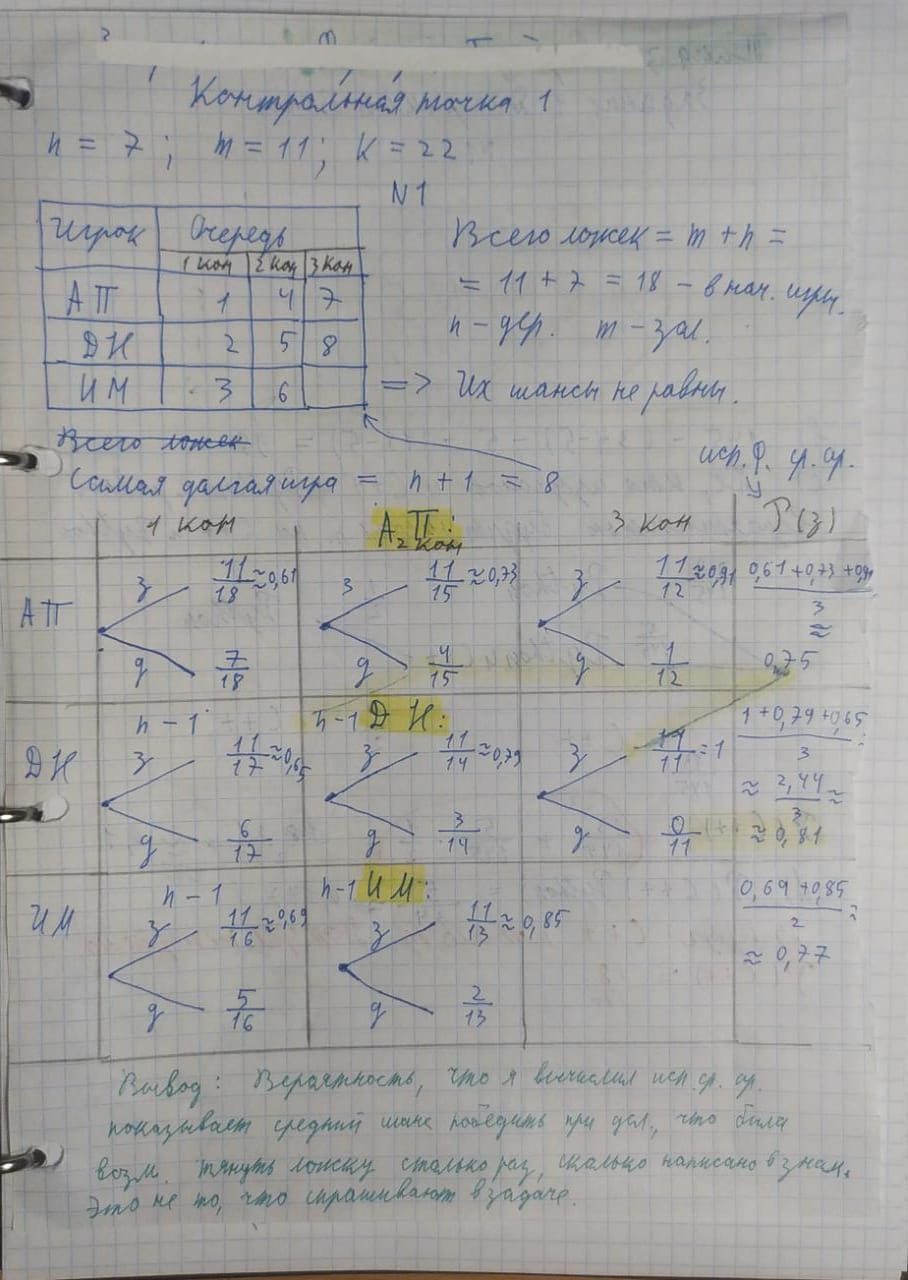 Контрольная точка 1
n = 7; m = 11; K = 22
N1
Игрок Очередь
1 кон 2 кон 3 кон
АП 1 4 7
ДН 2 5 8
ИМ 3 6
Всего ложек = m + n =
= 11 + 7 = 18 – в нач. игры.
n – дер. m – зол.
=> Их шансы не равны.
Всего ложек
Самая долгая игра = n + 1 = 8
исп. ф. ср. ар.
1 кон 2 кон 3 кон P(з)
АП:
АП
з 11/18 ≈ 0,61 з 11/15 ≈ 0,73 з 11/12 ≈ 0,91 (0,61 + 0,73 + 0,91)/3 ≈
д 7/18 д 4/15 д 1/12 0,75
n – 1 n – 1 ДН:
ДН
з 11/17 ≈ 0,65 з 11/14 ≈ 0,79 з 11/11 = 1 (1 + 0,79 + 0,65)/3 =
≈ 2,44/3 ≈
д 6/17 д 3/14 д 0/11 ≈ 0,81
n – 1 n – 1 ИМ:
ИМ
з 11/16 ≈ 0,69 з 11/13 ≈ 0,85 (0,69 + 0,85)/2 =
≈ 0,77
д 5/16 д 2/13
Вывод: Вероятность, что я вычислил исп. ср. ар.
показывает средний шанс победить при усл., что была
возм. тянуть ложку столько раз, сколько написано в знам.
Это не то, что спрашивают в задаче.